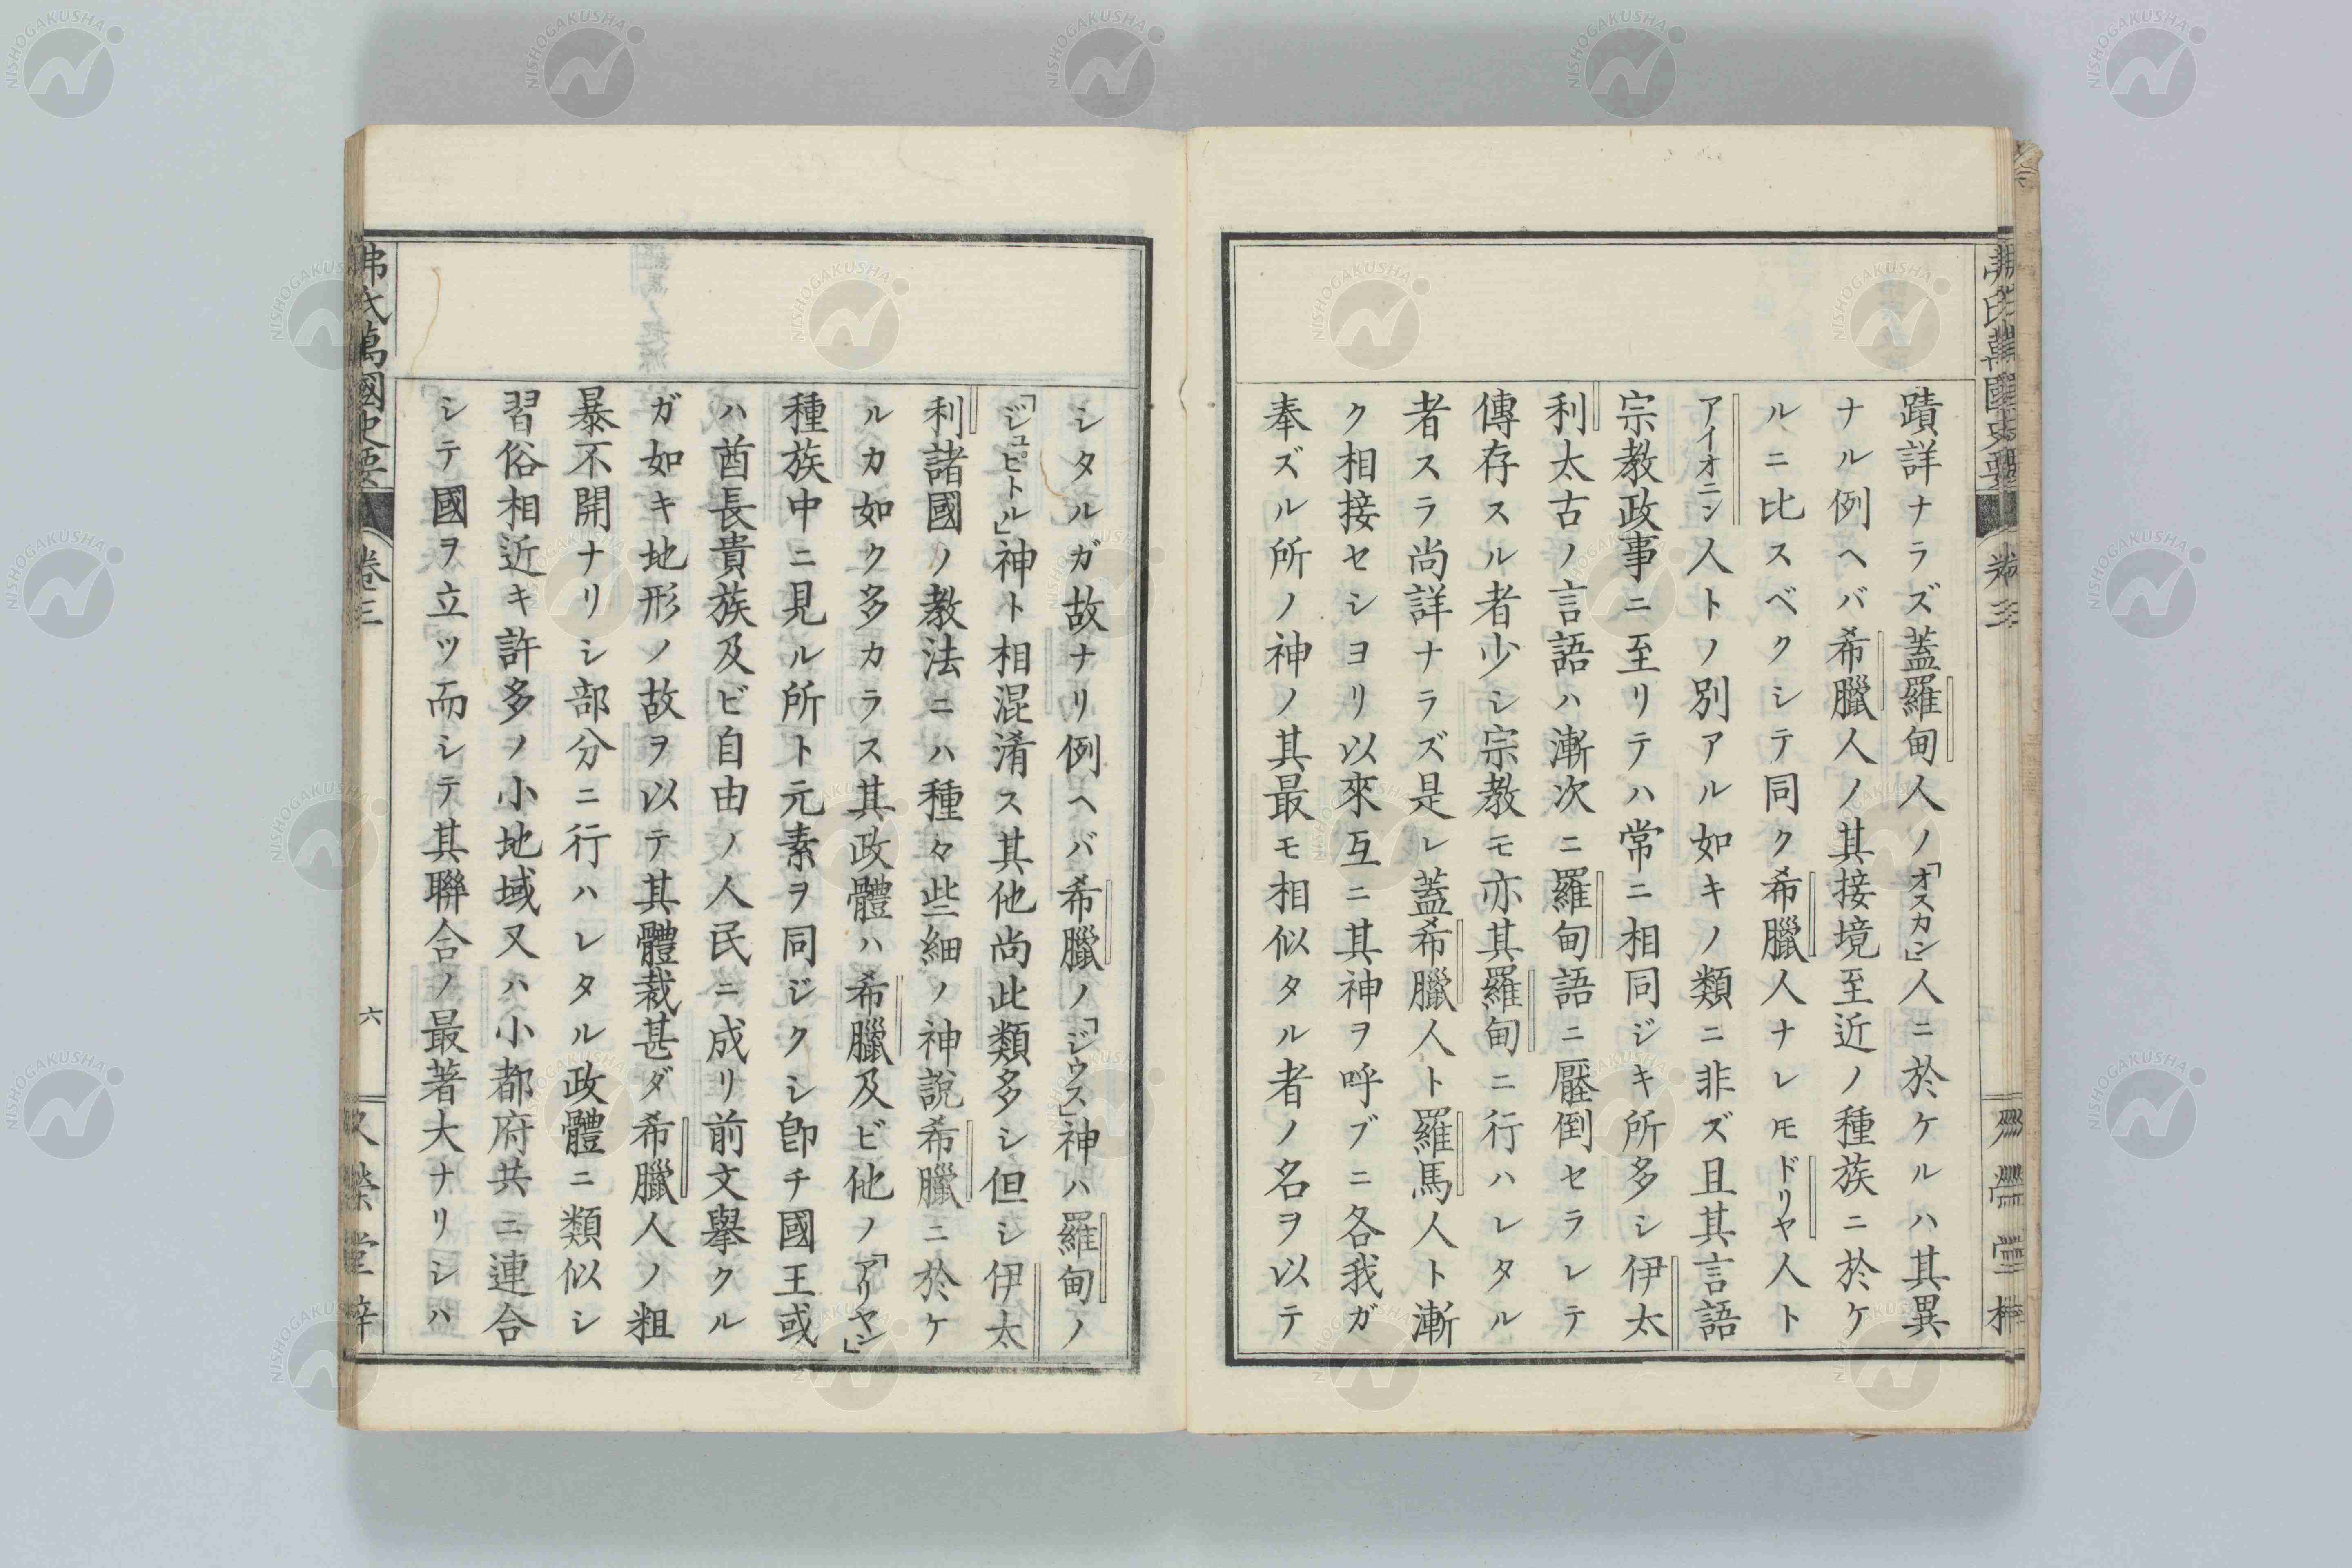 蹟詳ナラズ蓋羅甸人ノ「オスカン」人ニ於ケルハ其異
ナル例ヘバ希臘人ノ其接境至近ノ種族ニ於ケ
ルニ比スベクシテ同ク希臘人ナレ𪜈ドリヤ人ト
アイオニシ人トノ別アル如キノ類ニ非ズ且其言語
宗教政事ニ至リテハ常ニ相同ジキ所多シ伊太
利太古ノ言語ハ漸次ニ羅甸語ニ壓倒セラレテ
傳存スル者少シ宗教モ亦其羅甸ニ行ハレタル
者スラ尚詳ナラズ是レ蓋希臘人ト羅馬人ト漸
ク相接セシヨリ以來互ニ其神ヲ呼ブニ各我ガ
奉ズル所ノ神ノ其最モ相似タル者ノ名ヲ以テ
シタルガ故ナリ例ヘバ希臘ノ「ジウス」神ハ羅甸ノ
「ジュピトル」神ト相混淆ス其他尚此類多シ但シ伊太
利諸國ノ教法ニハ種々些細ノ神說希臘ニ於ケ
ルカ如ク多カラス其政體ハ希臘及ビ他ノ「アリヤン」
種族中ニ見ル所ト元素ヲ同ジクシ卽チ國王或
ハ酋長貴族及ビ自由ノ人民ニ成リ前文擧クル
ガ如キ地形ノ故ヲ以テ其體裁甚ダ希臘人ノ粗
暴不開ナリシ部分ニ行ハレタル政體ニ類似シ
習俗相近キ許多ノ小地域又ハ小都府共ニ連合
シテ國ヲ立ツ而シテ其聯合ノ最著大ナリシハ
弗氏萬國史要
卷三
六
NISHOGAKUSHA